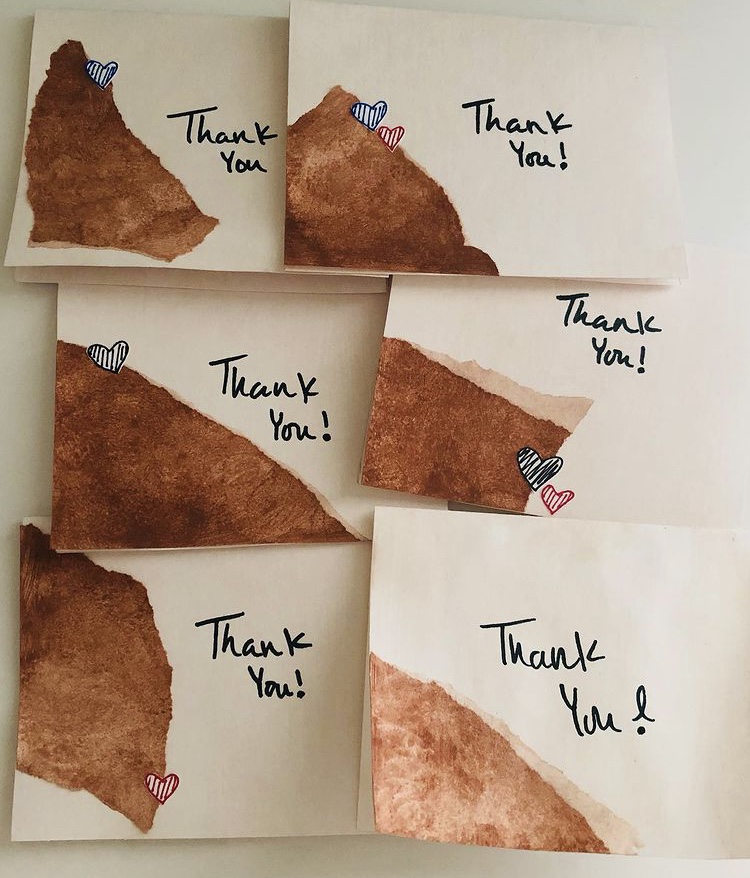 Thank
You
Thank
You!
Thank
You!
Thank
You!
Thank
You!
Thank
You!